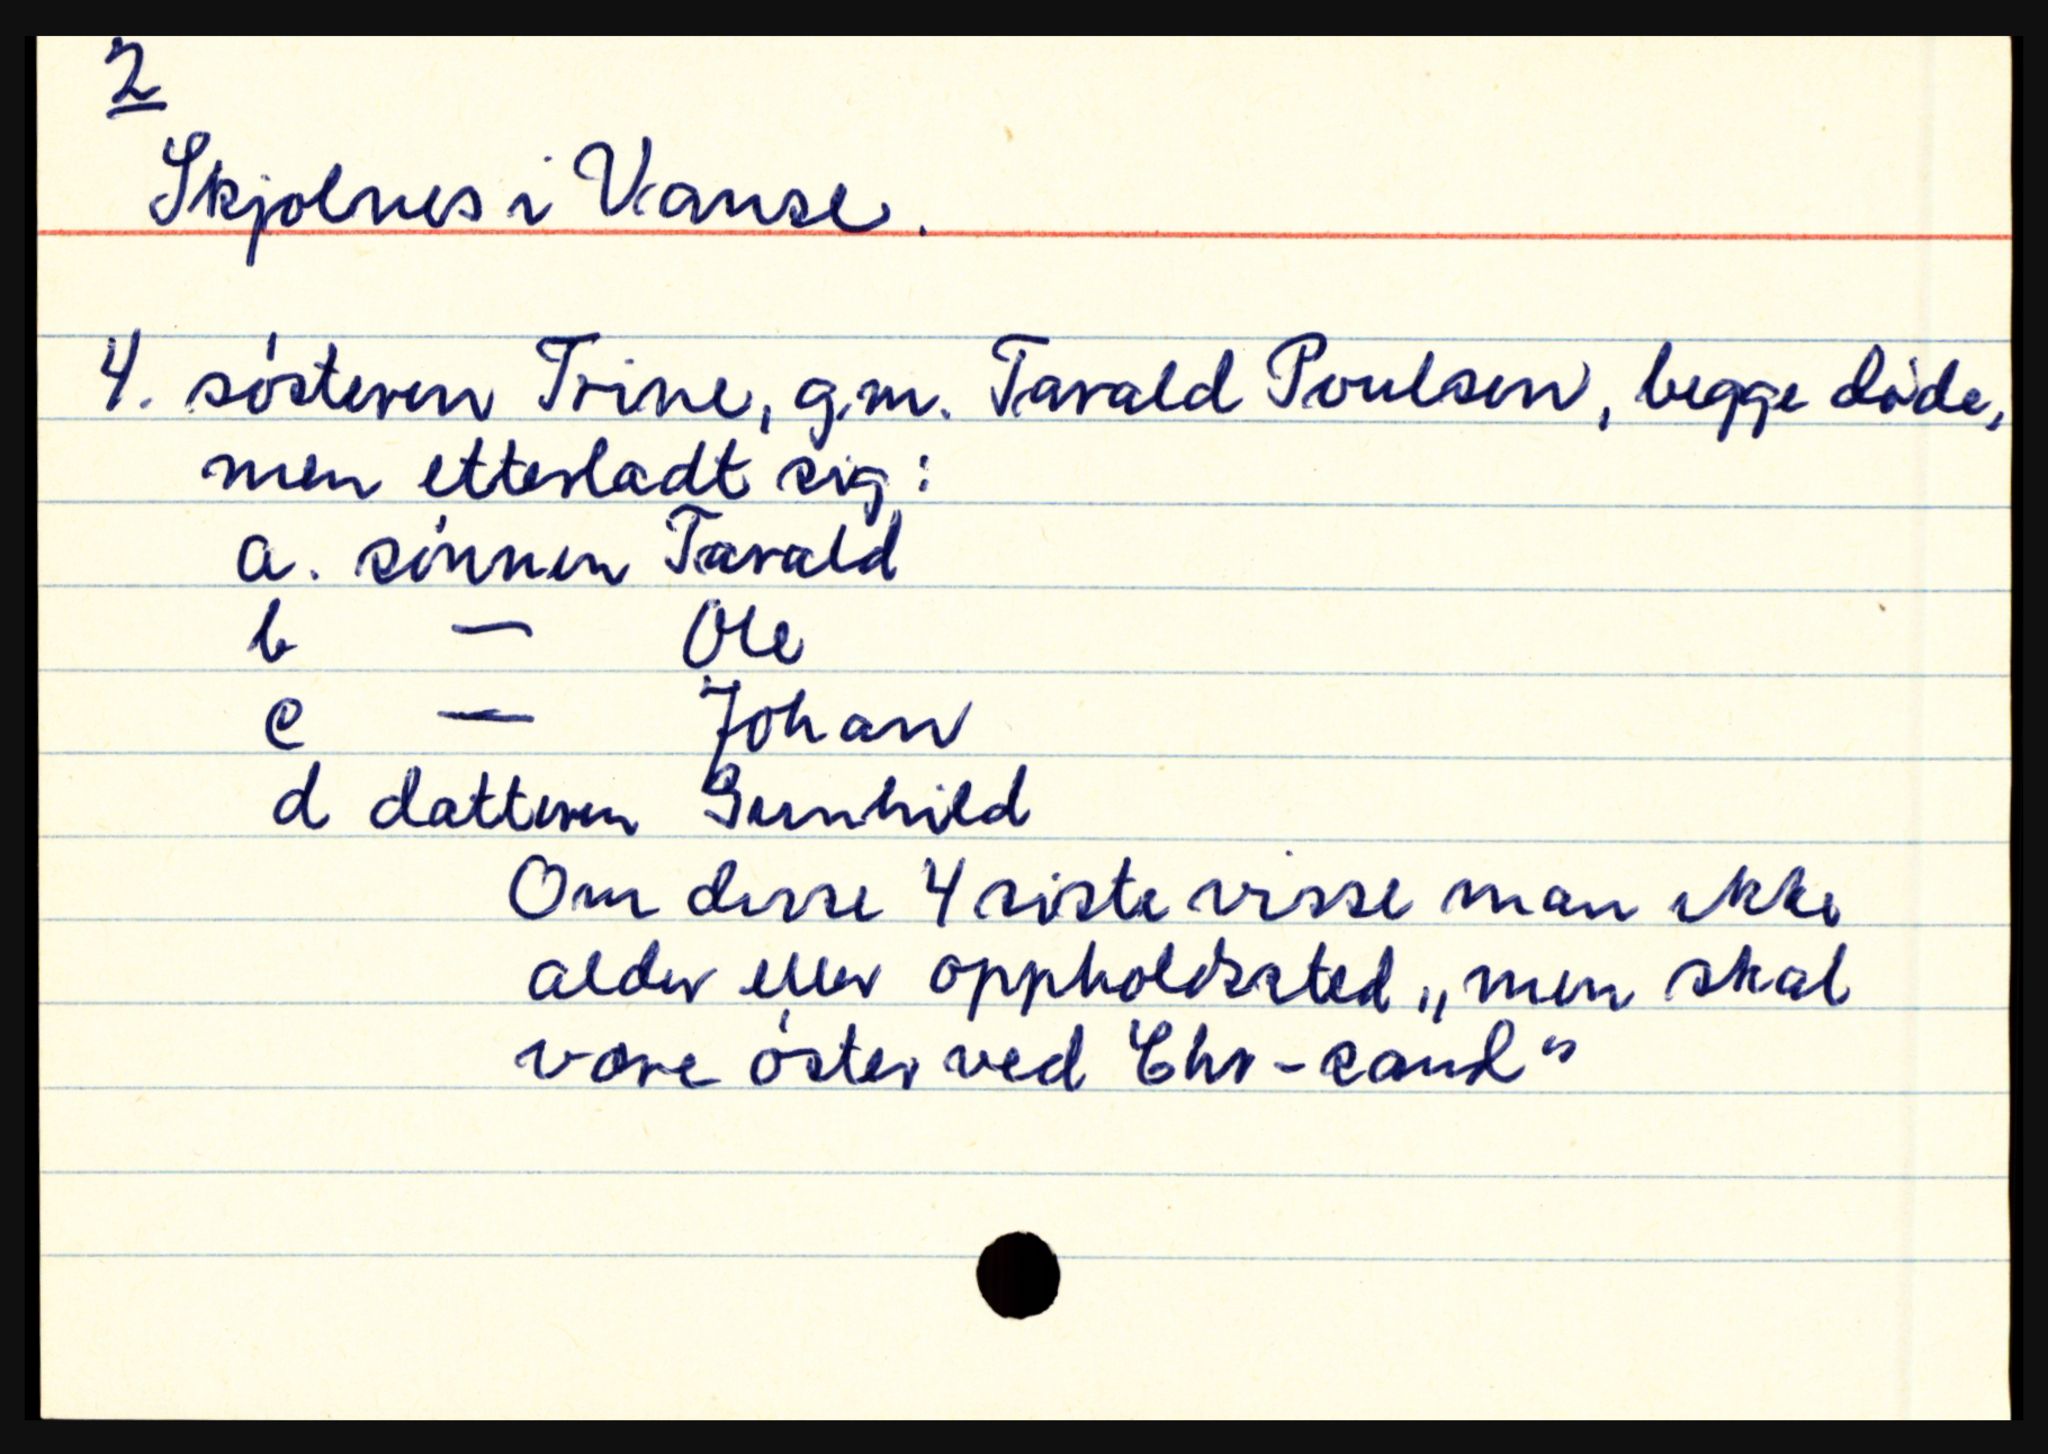 2
Skjolnes i Vanse.
4. søsteren Trine, g.m. Tarald Poulsen, begge døde,
men etterladt sig:
a. sønnen Tarald
b — Ole
c — Johan
d datteren Gunhild
Om disse 4 siste visse man ikke
alder eller oppholdssted „men skal
være øster ved Chr-sand"